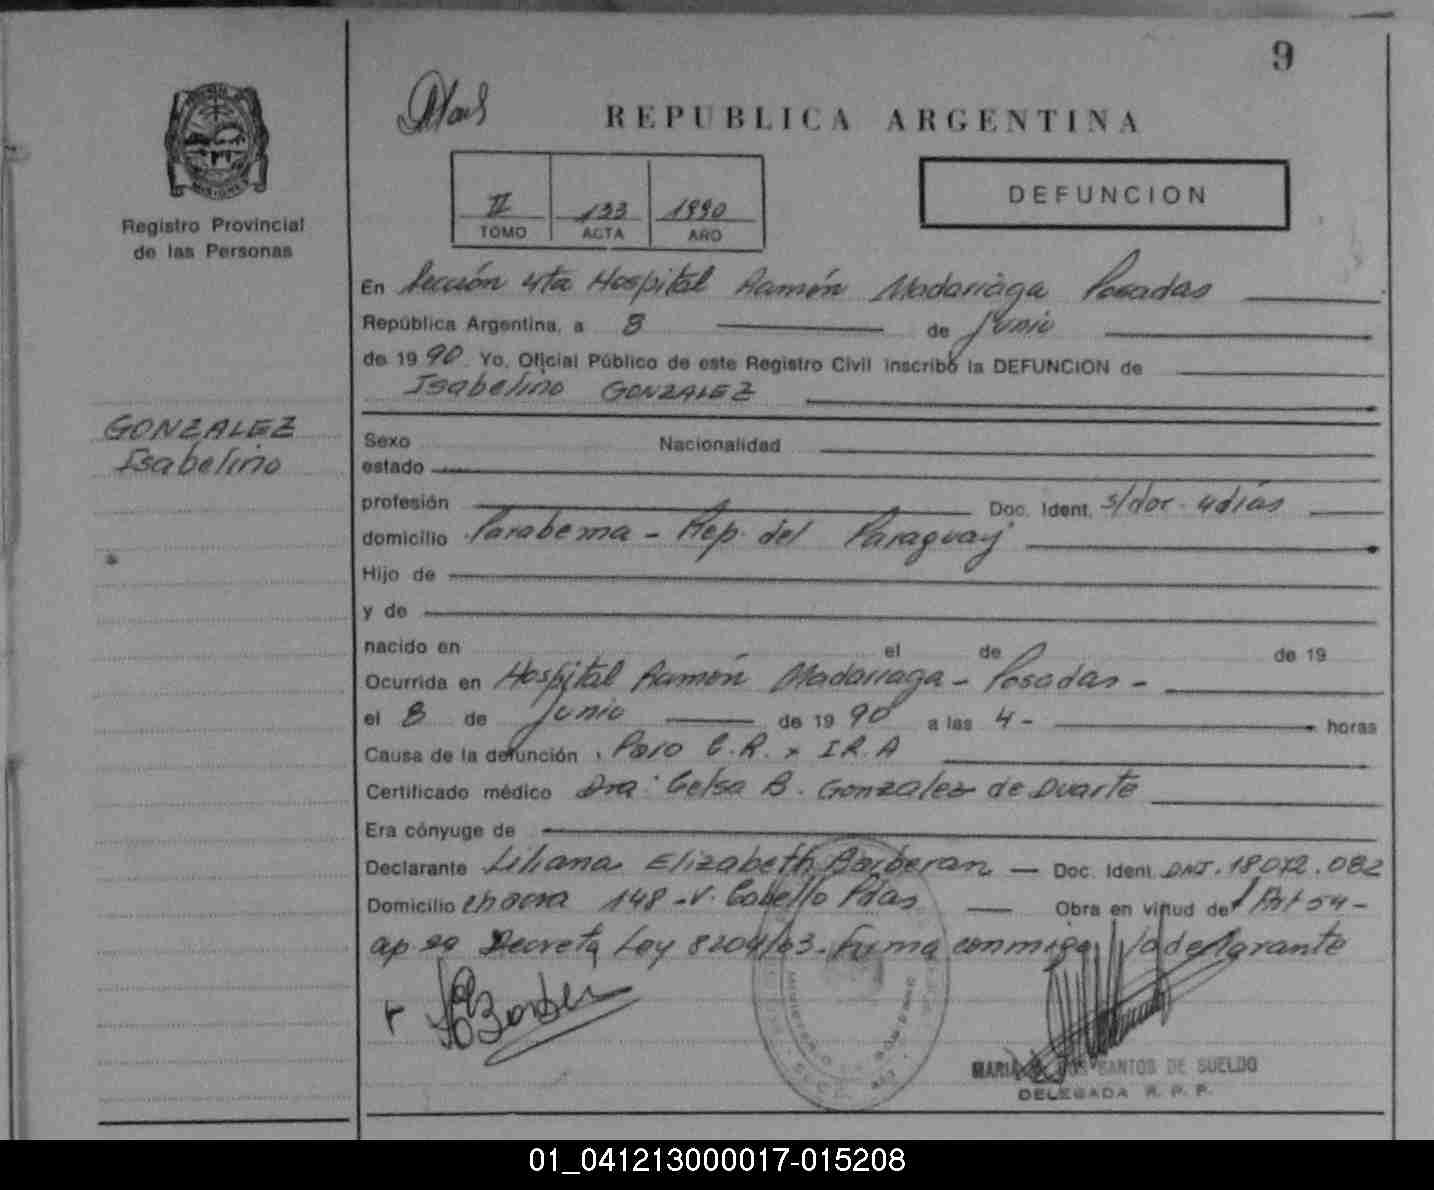 9
REPUBLICA ARGENTINA
MISIONES
Registro Provincial
de las Personas
II 133 1990
TOMO ACTA AÑO
DEFUNCION
En Sección 4ta Hospital Ramón Madariaga Posadas
República Argentina, a 8 de Junio
de 1990. Yo, Oficial Público de este Registro Civil inscribo la DEFUNCION de
Isabelino GONZALEZ
GONZALEZ
Isabelino
Sexo Nacionalidad
estado
profesión Doc. Ident. s/doc. 4 días
domicilio Parabema - Rep. del Paraguay
Hijo de
y de
nacido en el de de 19
Ocurrida en Hospital Ramón Madariaga - Posadas -
el 8 de Junio de 1990 a las 4 - horas
Causa de la defunción Paro C.R. x I.R.A
Certificado médico Dra. Celsa B. Gonzalez de Duarte
Era cónyuge de
Declarante Liliana Elizabeth Barberan - Doc. Ident. DNI. 18.072.082
Domicilio chacra 148 - V. Cabello Pdas - Obra en virtud del Art 54 -
ap. Decreto Ley 8204/63. Firma conmigo la declarante
MARIA DOS SANTOS DE SUELDO
DELEGADA R. P. P.
01_041213000017-015208